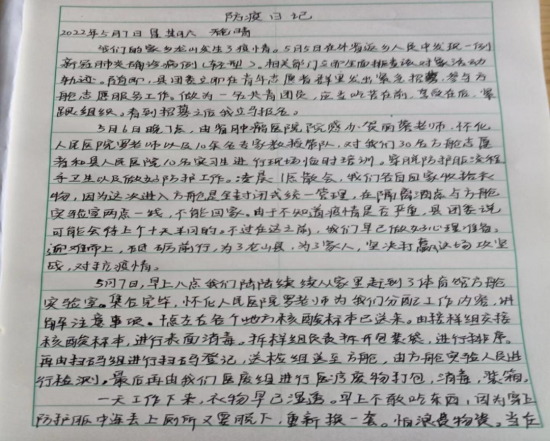 防疫日记
2022年5月7日 星期六 晴
我们的家乡龙山发生了疫情。5月5日在外省返乡人民中发现一例
新冠肺炎确诊病例（轻型）。相关部门立即展开流调对象活动
轨迹。随即，县团委立即在青年志愿者群里发出紧急招募，参与方
舱志愿服务工作。做为一名共青团员，应当吃苦在前，享受在后，紧
跟组织。看到招募之后我立马报名。
5月6日晚7点，由省肿瘤医院院感办 老师，怀化
人民医院罗老师以及10余名专家教援队，对我们30名方舱志愿
者和县人民医院10名实习生进行现场临时培训。穿脱防护服没难
手卫生以及做好防护工作。凌晨1点散会，我们各自回家收拾衣
物，因为这次进入方舱是全封闭式统一管理，在隔离酒店与方舱
实验室两点一线，不能回家。由于不知道疫情是否严重，县团委说
可能会持上个十天半月的。不过在这之前，我们早已做好心理准备。
迎难而上，砥砺前行，为了龙山县，为了家人，坚决打赢这场攻坚
战，对抗疫情。
5月7日，早上八点我们陆陆续续从家里赶到了体育馆方舱
实验室。集合完毕，怀化人民医院罗老师为我们分配工作内容，讲
解注意事项。十点左右各个地方核酸标本已送来。由接样组交接
核酸标本，进行表面消毒。拆样组负责拆开包装袋，进行排序。
再由扫码组进行扫码登记，送检组送至方舱，由方舱实验人员进
行检测。最后再由我们医废组进行医疗废物打包，消毒，装箱。
一天工作下来，衣物早已湿透。早上不敢吃东西，因为穿上
防护服中途去上厕所又要脱下，重新换一套。怕浪费物资。当在